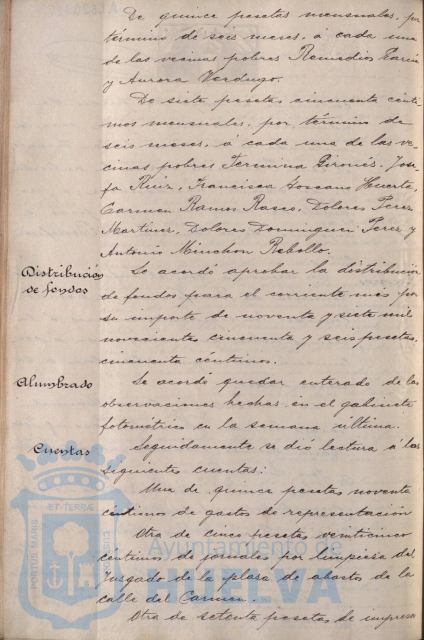 De quince pesetas mensuales, por
término de seis meses, á cada una
de las vecinas pobres Remedios
y Aurora Verdugo.
De siete pesetas cincuenta cénti-
mos mensuales, por término de
seis meses, á cada una de las ve-
cinas pobres Fermina Gironés, Jose-
fa Ruiz, Francisca Toscano Huerta,
Carmen Ramos Rasco, Dolores Perez
Martinez, Dolores Dominguez Perez y
Antonio Minchon Rebollo.
Distribución
de fondos
Se acordó aprobar la distribución
de fondos para el corriente mes por
su importe de noventa y siete mil
novecientas cincuenta y seis pesetas,
cincuenta céntimos.
Alumbrado
Se acordó quedar enterado de las
observaciones hechas en el gabinete
fotométrico en la semana última.
Cuentas
Seguidamente se dió lectura á las
siguientes cuentas:
Una de quince pesetas noventa
céntimos de gastos de representación
Otra de cinco pesetas veinticinco
céntimos de jornales por limpiesa del
Juzgado de la plaza de abastos de la
calle del Carmen.
Otra de setenta pesetas de impresa
Ayuntamiento de
HUELVA
PORTUS MARIS
ET TERRÆ
CUSTODIA